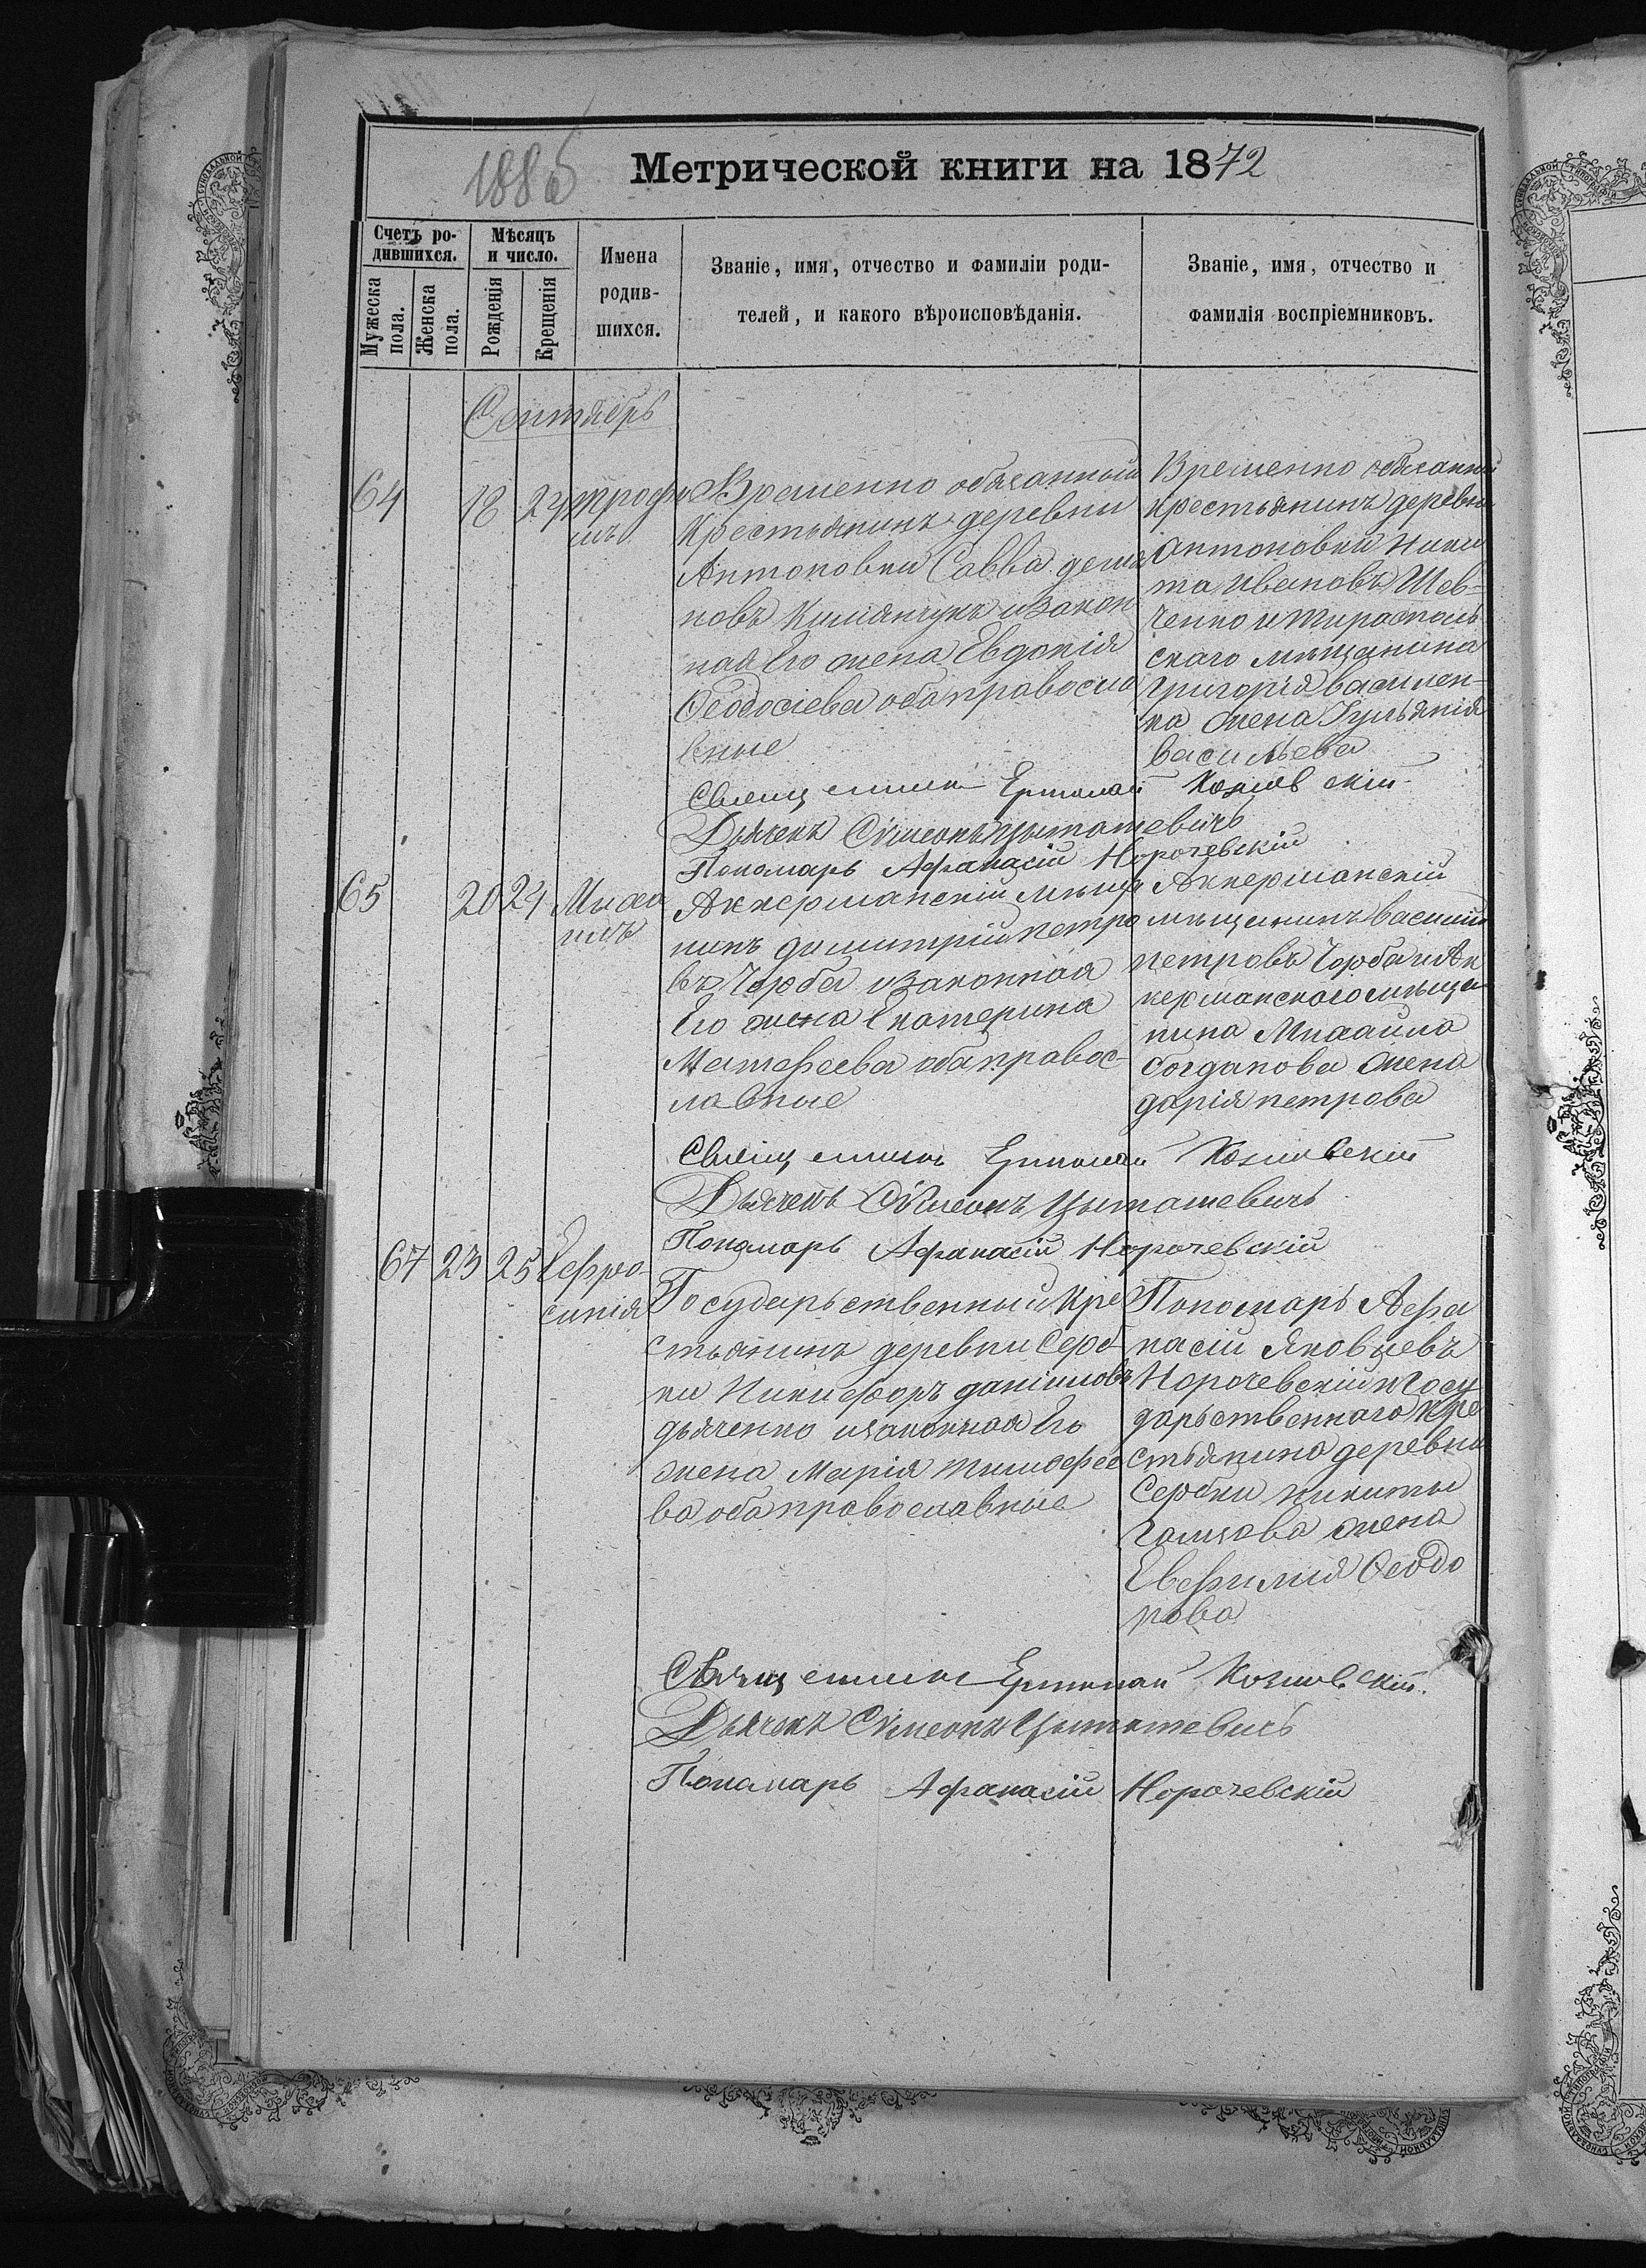 1886
Метрической книги на 1872
Счетъ ро-
дившихся.
Мужеска
пола.
Женска
пола.
Мѣсяцъ
и число.
Рожденія
Крещенія
Имена
родив-
шихся.
Званіе, имя, отчество и фамиліи роди-
телей, и какого вѣроисповѣданія.
Званіе, имя, отчество и
фамилія воспріемниковъ.
Сентябрь
64
18
24
Трофи
мъ
Временно обязанный
Крестьянинъ деревни
Антоновки Савва
новъ и закон
ная Его жена Евдокія
Феодосіева оба правосла
вные
Временно обязанный
Крестьянинъ деревни
Антоновки Ники
та Ивановъ Шев-
ченко и Тирасполь
скаго мѣщанина
Григорія василен-
ка жена Іульянія
васильева
Священникъ Ермолай Козловскій
Дьячекъ Сѵмеонъ Цытотевичъ
Пономарь Афанасій Норочевскій
65
20
24
Миха
илъ
Аккерманскій мѣща
нинъ димитрій петро
въ Чорба и законная
Его жена Екатерина
Матѳеева оба правос-
лавные
Аккерманскій
мѣщанинъ василій
петровъ Чорба и Ак
керманского мѣща
нина Михаила
богданова жена
дарія петрова
Священникъ Ермолай Козловскій
Дьячекъ Сѵмеонъ Цытотевичъ
Пономарь Афанасій Норочевскій
67
23
25
Ефро-
синія
Государьственный кре
стьянинъ деревни Серб-
ки Никифоръ даніиловъ
дьяченко и законная Его
жена Марія тимофее
ва оба православные
Пономарь Афа
насій Яковлевъ
Норочевскій и Госу
дарьственнаго кре
стьянина деревни
Сербки никиты
жена
Евфимія Феодо
рова
Священникъ Ермолай Козловскій.
Дьячекъ Сѵмеонъ Цытотевичъ
Пономарь Афанасій Норочевскій